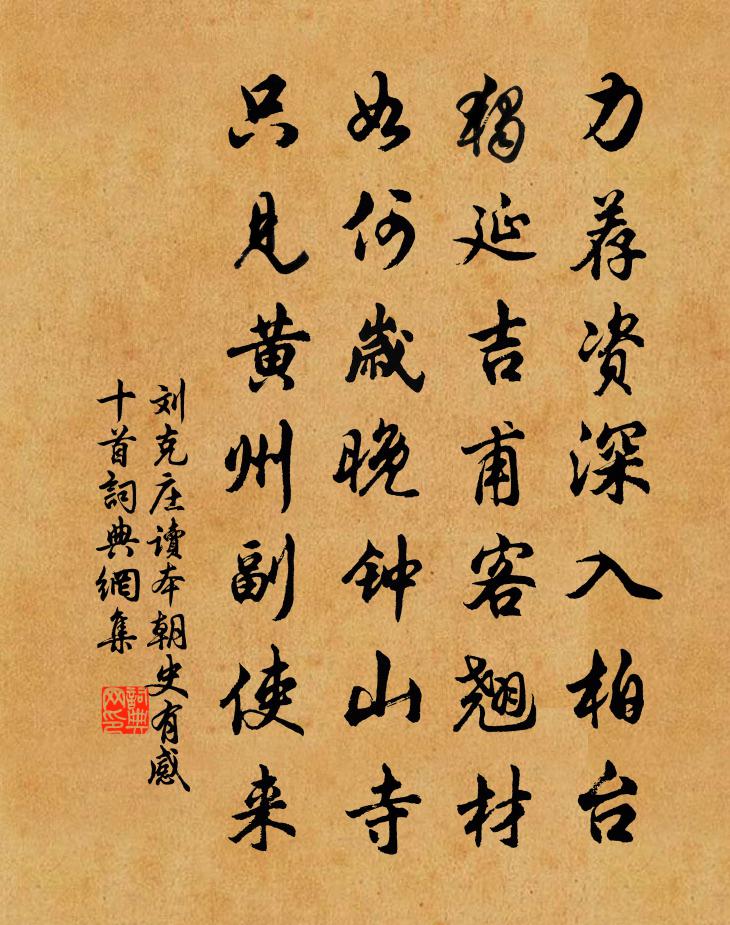 力荐资深入柏台
獨延吉甫客翘材
如何歳晚钟山寺
只見黄州副使来
刘克庄讀本朝史有感
十首詞典網集
詞典网印